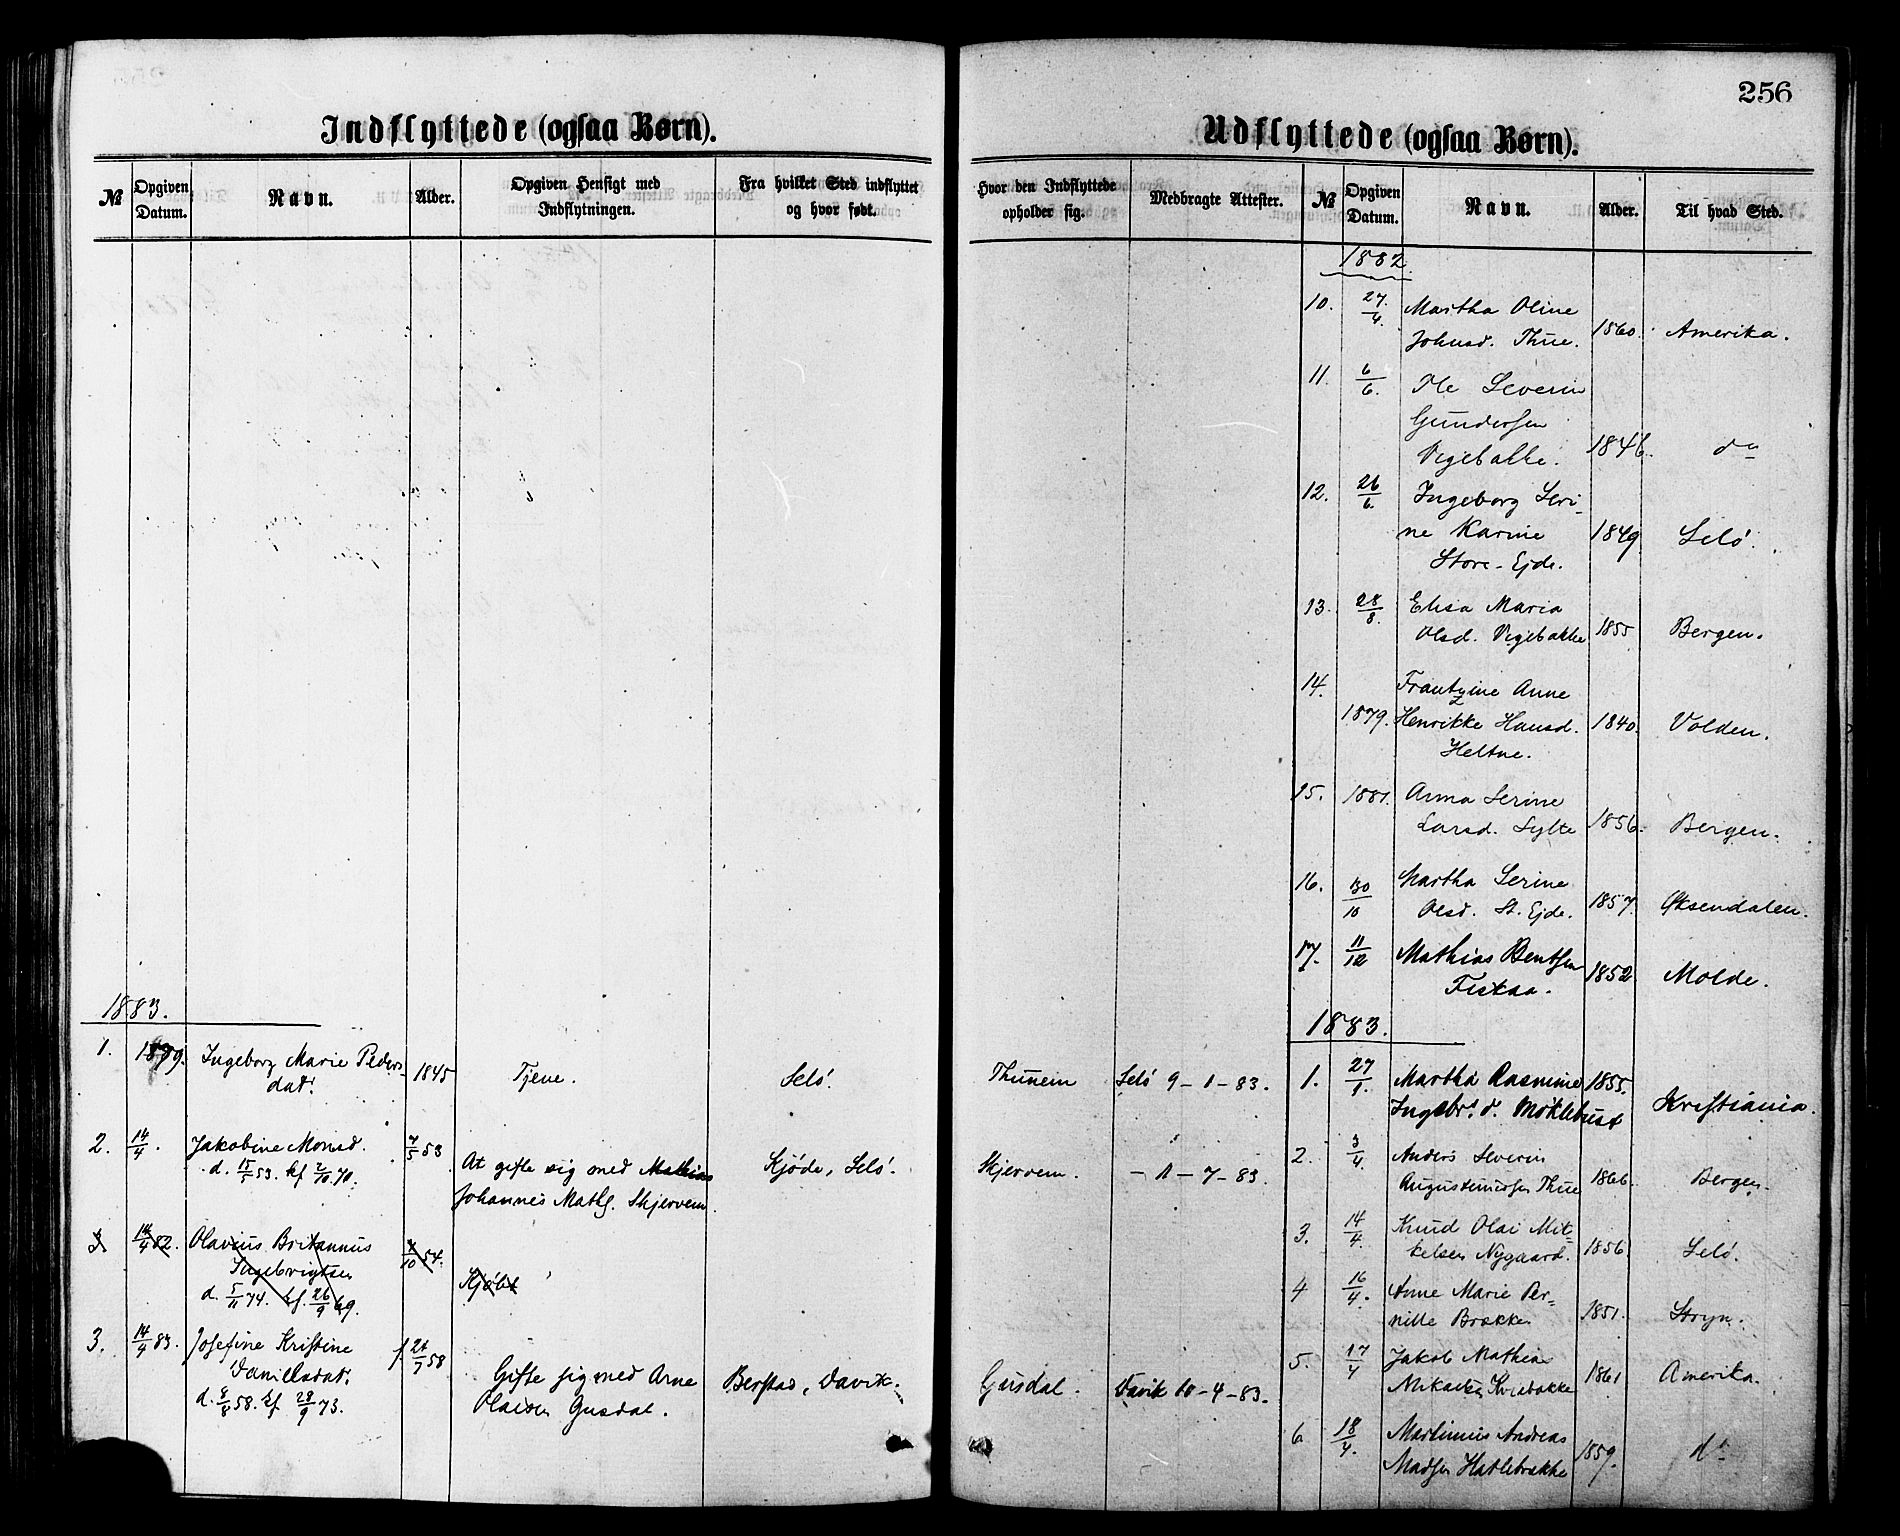 256
Indflyttede (ogsaa Børn).
№ Opgiven Datum. Navn. Alder. Opgiven Hensigt med Indflytningen. Fra hvilket Sted indflyttet og hvor født.
1883.
1. 1879. Ingeborg Marie Peders- 1845 Tjene. Selö.
datr.
2. 14/4. Jakobine Monsd. 7/5 53
d. 15/5 53. kf 2/10 70. At gifte sig med Mathias Kjöde, Selö.
Johannes Maths. Skjervem.
3 14/4 82. Olavius Britannus 4/10 54.
Ingebrigtsen Kjöbt
d. 5/11 74. kf. 26/9 69.
3. 14/4 83. Josefine Kristine f. 21/7 58
Danielsdatr. Gifte sig med Arne Berstad, Davik.
d. 8/8 58. kf 28/9 73. Olaisen Gusdal.
Udflyttede (ogsaa Børn).
Hvor den Indflyttede opholder sig. Medbragte Attester. № Opgiven Datum. Navn. Alder. Til hvad Sted.
Thunem Selö 9-1-83.
Skjervem. - 11-7-83.
Gusdal. Davik 10-4-83.
1882.
10. 27/4. Martha Oline
Johnsd. Thue. 1860. Amerika.
11. 6/6. Ole Severin
Gundersen
Vegebakke. 1846. do
12. 26/6. Ingeborg Seri-
ne Karine 1849 Selö.
Store-Ejde.
13. 28/8. Elisa Maria
Olsd. Vegebakke 1855 Bergen.
14. Frantzine Anne
1879. Henrikke Hansd. 1840. Volden.
Heltne.
15. 1881. Anna Serine
Larsd. Sylte 1856. Bergen.
16. 30/10 Martha Serine
Olsd. St. Ejde. 1857. Øksendalen.
17. 11/12 Mathias Bentsen
Fiskaa. 1852 Molde.
1883.
1. 27/1. Martha Rasmine 1855.
Ingebr. d. Möklebust Kristiania.
2. 3/4. Anders Severin
Augustinussen Thue 1866. Bergen.
3. 14/4. Knud Olai Mik-
kelsen Nygaard. 1856. Selö.
4 16/4. Anne Marie Per-
nille Brække 1851. Stryn.
5. 17/4 Jakob Mathias
1861 Amerika.
6 18/4. Martinius Andreas
Madsen Hatlebrække 1859. do